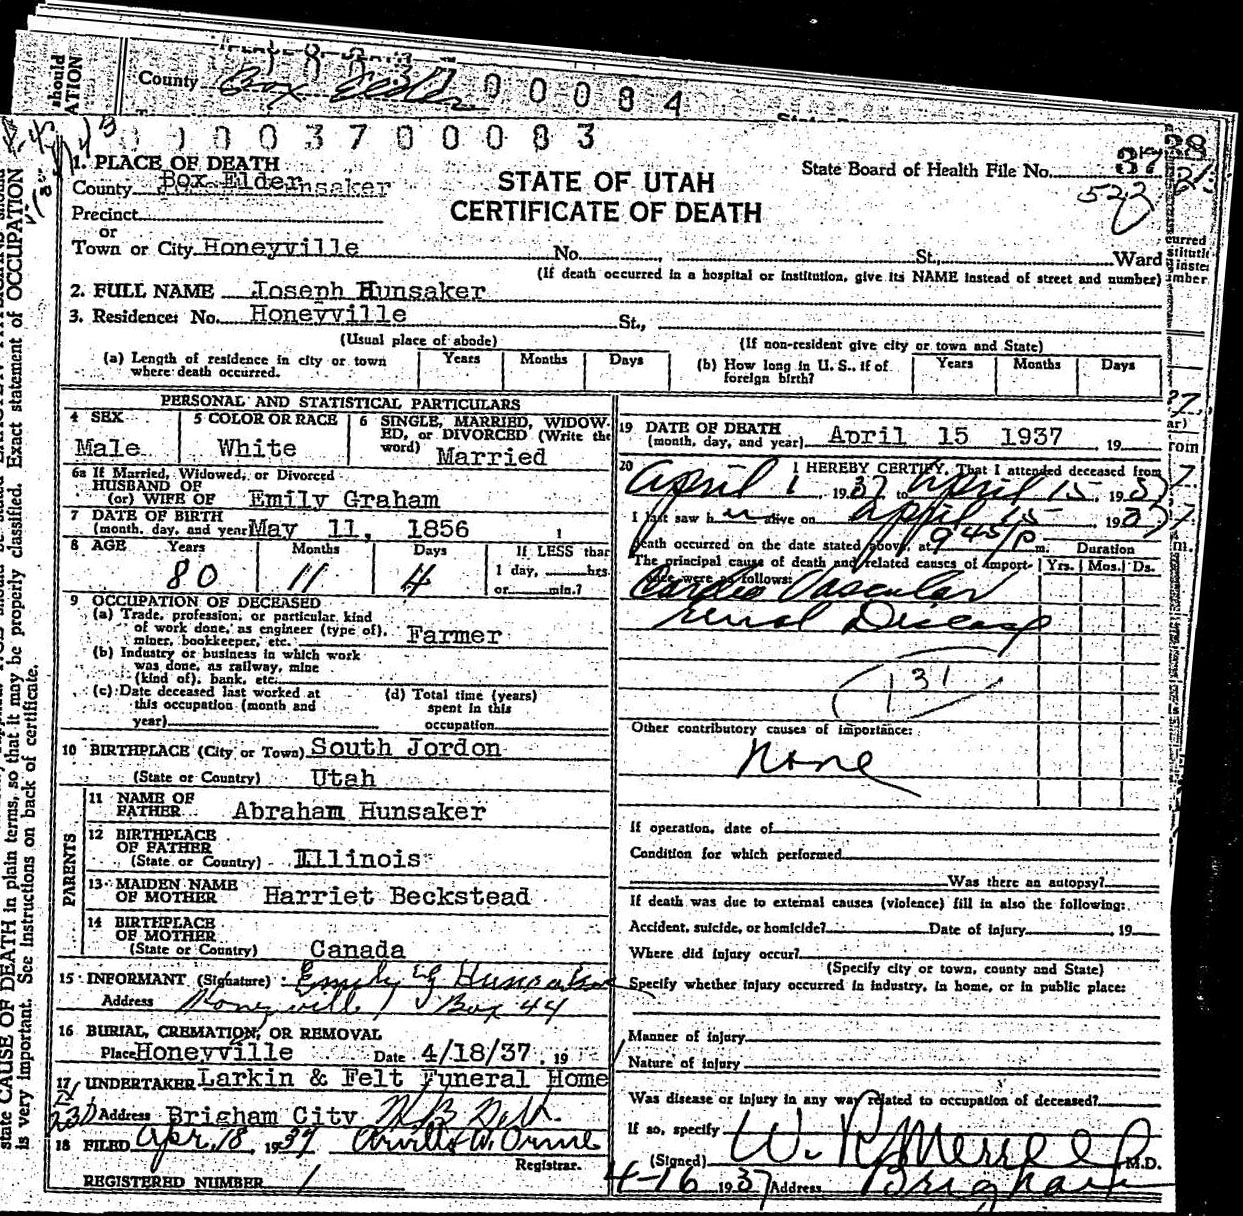 County Box Elder 0 0 0 8 4
0 0 0 0 3 7 0 0 0 8 3
1. PLACE OF DEATH
County Box Elder nsaker
Precinct
or
Town or City Honeyville No. , St., Ward
STATE OF UTAH
CERTIFICATE OF DEATH
State Board of Health File No. 37
523
(If death occurred in a hospital or institution, give its NAME instead of street and number)
2. FULL NAME Joseph Hunsaker
3. Residence: No. Honeyville St.,
(Usual place of abode) (If non-resident give city or town and State)
(a) Length of residence in city or town where death occurred. Years Months Days
(b) How long in U. S., if of foreign birth? Years Months Days
PERSONAL AND STATISTICAL PARTICULARS
4 SEX Male
5 COLOR OR RACE White
6 SINGLE, MARRIED, WIDOW-
ED, or DIVORCED (Write the
word) Married
6a If Married, Widowed, or Divorced
HUSBAND OF
(or) WIFE OF Emily Graham
7 DATE OF BIRTH
(month, day, and year May 11, 1856
8 AGE Years Months Days If LESS than
80 11 4 1 day, hrs.
or min.?
9 OCCUPATION OF DECEASED
(a) Trade, profession, or particular kind
of work done, as engineer (type of),
miner, bookkeeper, etc. Farmer
(b) Industry or business in which work
was done, as railway, mine
(kind of), bank, etc.
(c) Date deceased last worked at
this occupation (month and
year)
(d) Total time (years)
spent in this
occupation
10 BIRTHPLACE (City or Town) South Jordon
(State or Country) Utah
PARENTS
11 NAME OF
FATHER Abraham Hunsaker
12 BIRTHPLACE
OF FATHER
(State or Country) Illinois
13 MAIDEN NAME
OF MOTHER Harriet Beckstead
14 BIRTHPLACE
OF MOTHER
(State or Country) Canada
15 INFORMANT (Signature) Emily G Hunsaker
Address Honeyville Box 44
16 BURIAL, CREMATION, OR REMOVAL
Place Honeyville Date 4/18/37 , 19
17 UNDERTAKER Larkin & Felt Funeral Home
Address Brigham City
18 FILED Apr. 18, 1937 Orvilla W. Orme
Registrar.
REGISTERED NUMBER 1
19 DATE OF DEATH
(month, day, and year) April 15 1937 , 19
20 I HEREBY CERTIFY, That I attended deceased from
April 1 , 1937 to April 15 , 1937
I last saw h im alive on April 15 , 1937
death occurred on the date stated above, at 9 45 P m. Duration
The principal cause of death and related causes of import-
ance were as follows: Yrs. Mos. Ds.
Cardio Vascular
renal Disease
131
Other contributory causes of importance:
None
If operation, date of
Condition for which performed
Was there an autopsy?
If death was due to external causes (violence) fill in also the following:
Accident, suicide, or homicide? Date of injury , 19
Where did injury occur?
(Specify city or town, county and State)
Specify whether injury occurred in industry, in home, or in public place:
Manner of injury
Nature of injury
Was disease or injury in any way related to occupation of deceased?
If so, specify
(Signed) W. R. Merrell M.D.
4-16 1937 Address Brigham
state CAUSE OF DEATH in plain terms, so that it may be properly classified. Exact statement of OCCUPATION
is very important. See Instructions on back of certificate.